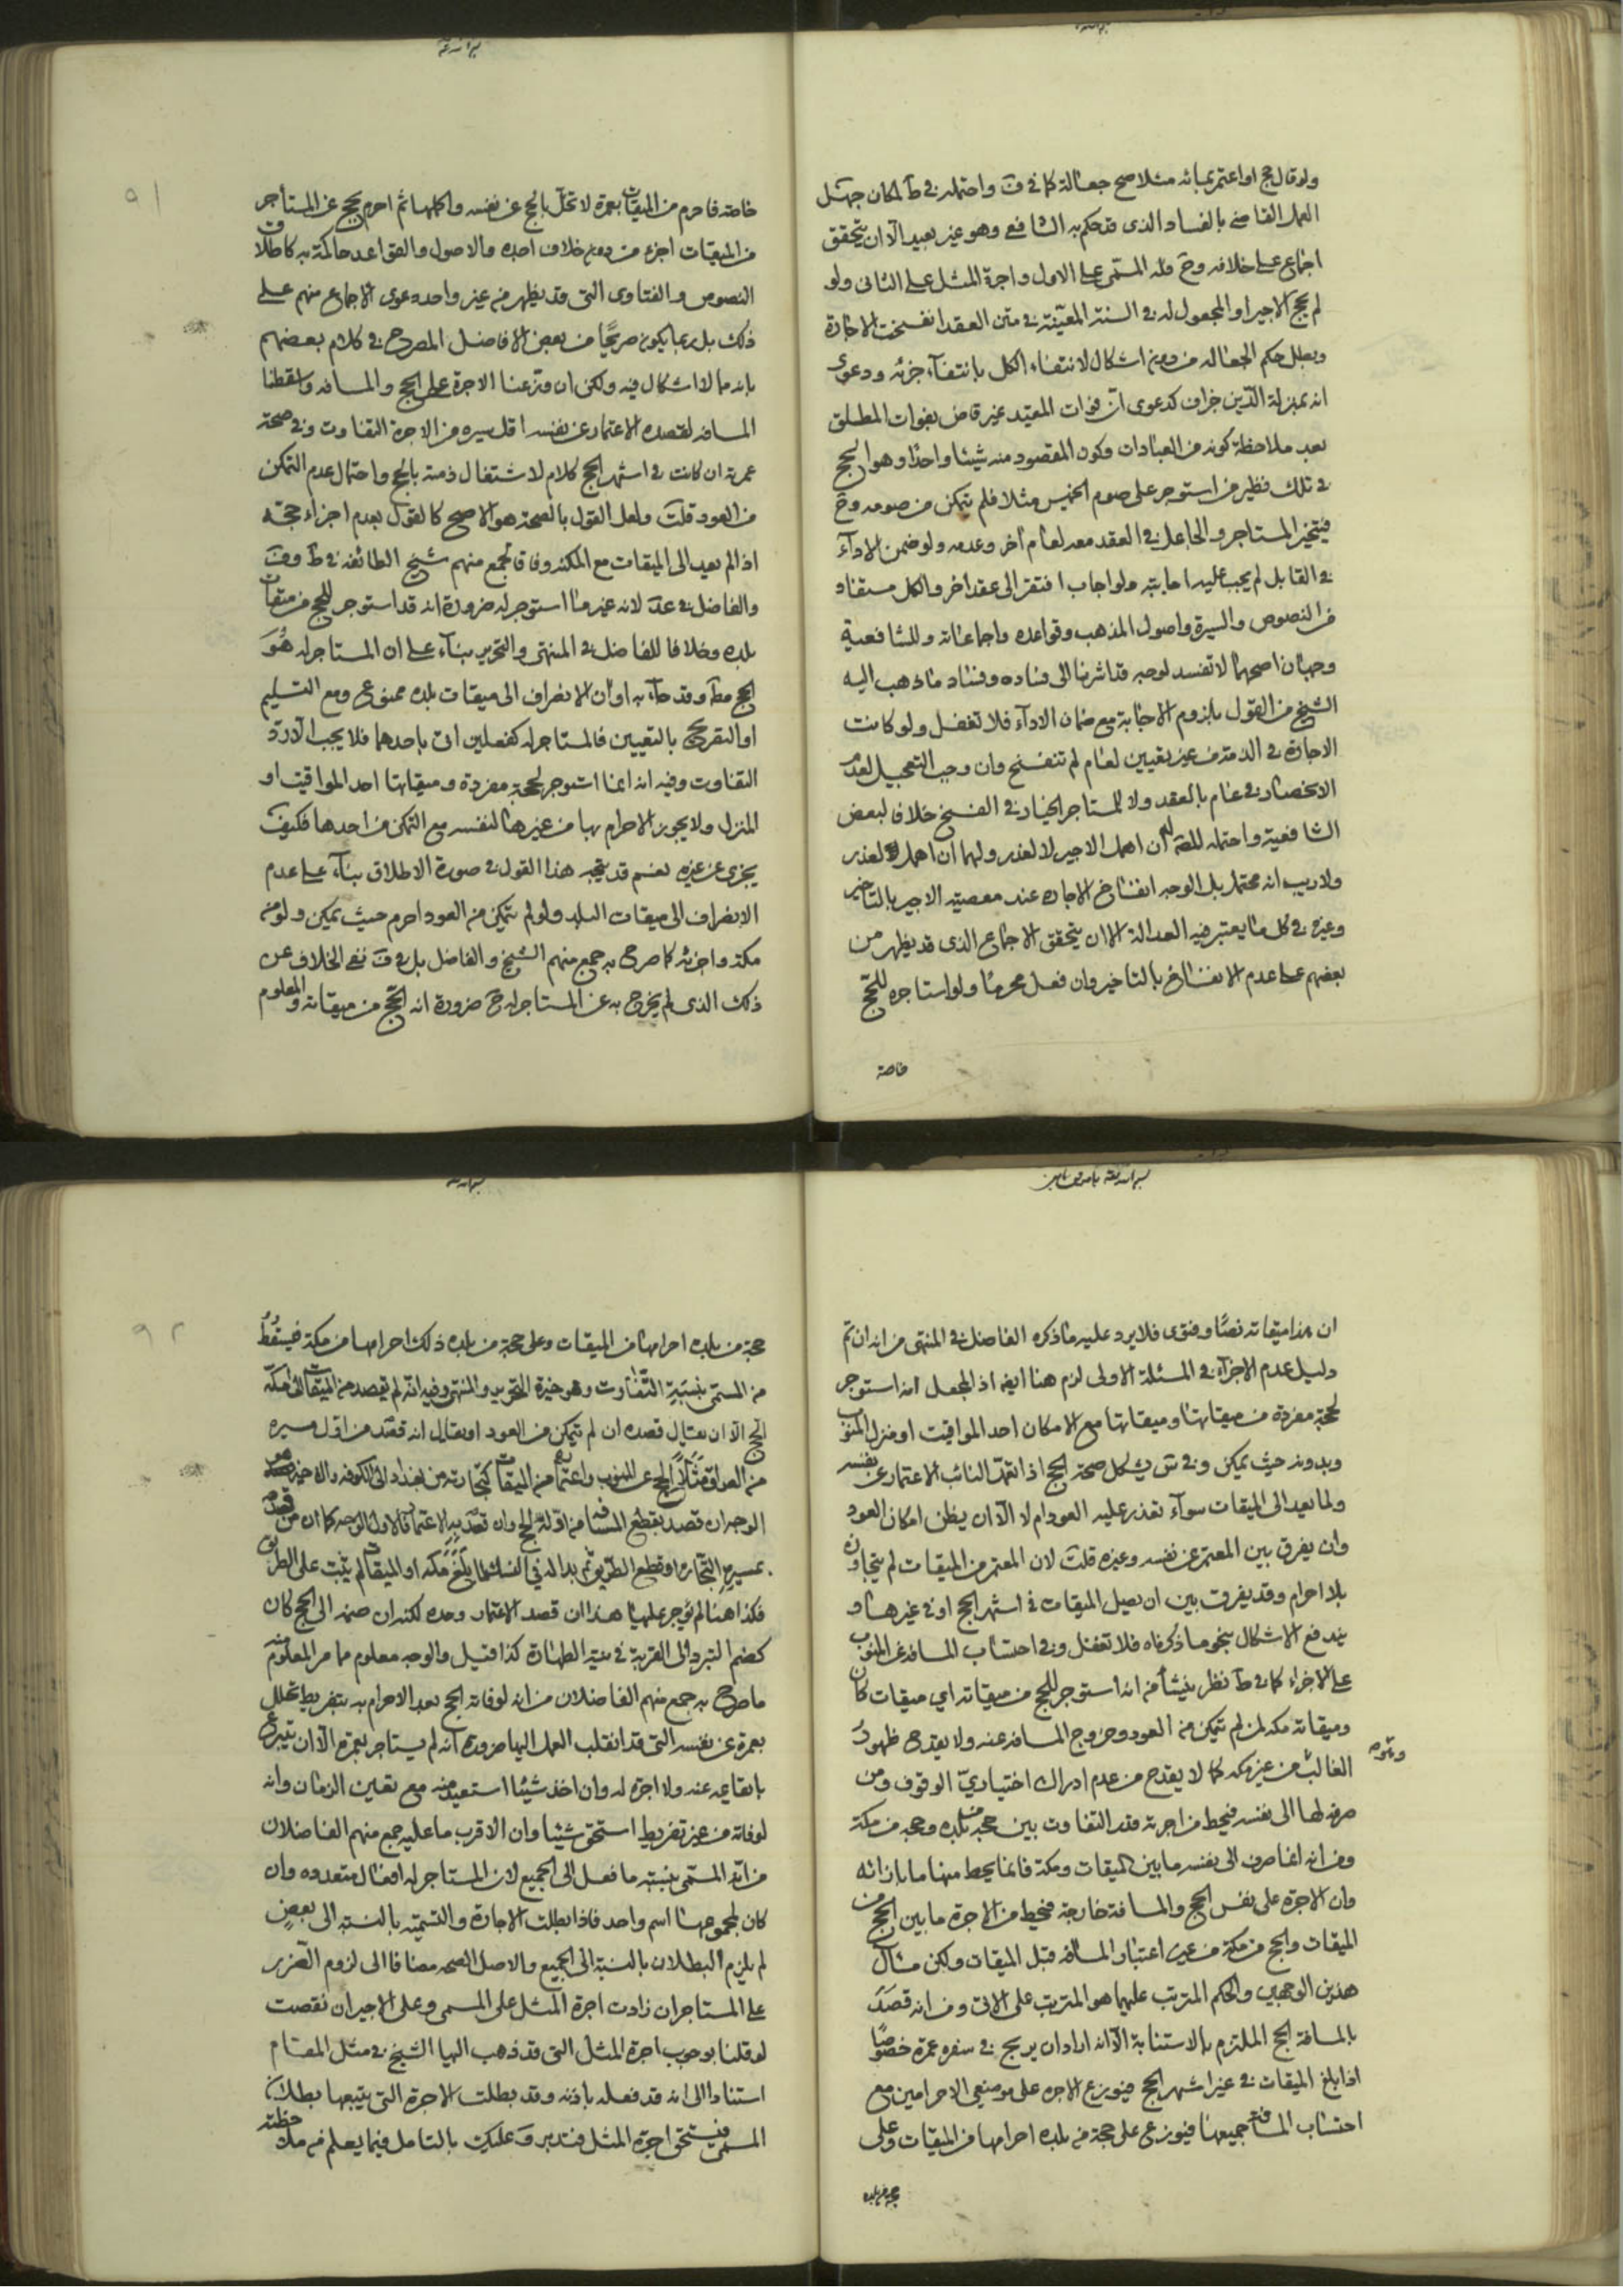 ولو قال حج او اعتمر بمائه مثلا صح جعالة كما في ف واحتمله في ط لمكان جهل
العمل القاضي بالفساد الذي قد حكم به الشافعي وهو غير بعيد الا ان يتحقق
اجماع على خلافه وح فله المسمى على الاول واجرة المثل على الثاني ولو
لم يحج الاجير او المجعول له في السنة المعينة في متن العقد انفسخت الاجارة
وبطل حكم الجعاله من دون اشكال لانتفاء الكل بانتفاء جزئه ودعوى
انه بمنزلة الدين خراف كدعوى ان فوات المقيد غير قاض بفوات المطلق
بعد ملاحظة كونه من العبادات وكون المقصود منه شيئا واحدا وهو الحج
في تلك فنظير من استوجر على صوم الخميس مثلا فلم يتمكن من صومه وح
فيتخير المستاجر والجاعل في العقد معه لعام آخر وعدمه ولو ضمن الاداء
في القابل لم يجب عليه اجابته ولو اجاب افتقر الى عقد اخر والكل مستفاد
من النصوص والسيرة واصول المذهب وقواعده واجماعاته وللشافعية
وجهان اصحهما لا تفسد لوجه قد اشرنا الى فساده وفساد ما ذهب اليه
الشيخ من القول بلزوم الاجابة مع ضمان الاداء فلا تغفل ولو كانت
الاجارة في الذمة من غير تعيين لعام لم تنفسخ وان وجب التعجيل لعدم
الانحصار في عام بالعقد ولا للمستاجر الخيار في الفسخ خلافا لبعض
الشافعية واحتمله للمعة ان اهمل الاجير لا لعذر ولهما ان اهمل لعذر
ولا ريب انه محتمل بل الوجه انفساخ الاجارة عند معصية الاجير بالتاخير
وغيره في كل ما يعتبر فيه العدالة الا ان يتحقق الاجماع الذي قد يظهر من
بعضهم على عدم الانفساخ بالتاخير وان فعل محرما ولو استاجره للحج
خاصة
خاصة فاحرم من الميقات بعمرة لا تحلل بالحج عن نفسه واكملها ثم احرم بحج عن المستأجر
من الميقات اجزء من دون خلاف اجده والاصول والقواعد حاكمة به كاطلاق
النصوص والفتاوى التي قد يظهر من غير واحد دعوى الاجماع منهم على
ذلك بل ربما يكون صريحا من بعض الافاضل المصرح في كلام بعضهم
بانه مما لا اشكال فيه ولكن ان وزعنا الاجرة على الحج والمسافه واسقطنا
المسافه لقصده الاعتمار عن نفسه اقل سيره من الاجرة التفاوت وفي صحة
عمرته ان كانت في اشهر الحج كلام لاشتغال ذمته بالحج واحتمال عدم التمكن
من العود قلت ولعل القول بالصحة هو الاصح كالقول بعدم اجزاء حجته
اذا لم يعد الى الميقات مع المكنة وفاقا لجمع منهم شيخ الطائفه في ط وف
والفاضل في عد لانه غير ما استوجر له ضرورة انه قد استوجر للحج من ميقات
بلده وخلافا للفاضل في المنتهى والتحرير بناء على ان المستاجر له هو
الحج مط وقد جاء به او ان الانصراف الى ميقات بلده ممنوع ومع التسليم
او التصريح بالتعيين فالمستاجر له كفعلين اتى باحدهما فلا يجب الا رد
التفاوت وفيه انه انما استوجر لحجة مفردة وميقاتها احد المواقيت او
المنزل ولا يجوز الاحرام بها من غيرها لنفسه مع التمكن من احدها فكيف
يجزى عن غيره نعم قد يتجه هذا القول في صورة الاطلاق بناء على عدم
الانصراف الى ميقات البلد ولو لم يتمكن من العود احرم حيث يمكن ولو من
مكة واجزء كما صرح به جمع منهم الشيخ والفاضل بل في ف نفي الخلاف عن
ذلك الذي لم يخرج به عن المستاجر له ح ضرورة انه حج من ميقاته والمعلوم
ان هذا ميقاته نصا وفتوى فلا يرد عليه ما ذكره الفاضل في المنتهى من انه ان تم
دليل عدم الاجزاء في المسئلة الاولى لزم هنا ايضا اذ المجعل انه استوجر
لحجة مفردة من ميقاتها وميقاتها مع الامكان احد المواقيت او منزل المنوب
وبدونه حيث يمكن وفي ش يشكل صحة الحج اذا تعمد النائب الاعتمار عن نفسه
ولما يعد الى الميقات سوآء تعذر عليه العود ام لا الا ان يظن امكان العود
وان يفرق بين المعتمر عن نفسه وغيره قلت لان المعتمر من الميقات لم يتجاوزه
بلا احرام وقد يفرق بين ان يصل الميقات في اشهر الحج او في غيرها و
يندفع الاشكال بنحو ما ذكرناه فلا تغفل وفي احتساب المسافه عن المنوب
على الاجراء كما في ط نظر ينشأ من انه استوجر للحج من ميقاته اي ميقات كان
وميقاته مكه لمن لم يتمكن من العود وخروج المسافه عنه ولا يقدح ظهور
الغالب من غير مكه كما لا يقدح من عدم ادراك اختياري الوقوف ومن
صرفه لها الى نفسه فيحط من اجرته قدر التفاوت بين حجه من بلده وحجه من مكة
ومن انه انما صرف الى نفسه ما بين الميقات ومكة فانما يحط منها ما بازائه
وان الاجرة على نفس الحج والمسافة خارجة فيحط من الاجرة ما بين الحج من
الميقات والحج من مكة من غير اعتبار المسافه قبل الميقات ولكن مثال
هذين الوجهين والحكم المترتب عليهما هو المترتب على الاتي ومن انه قصد
بالمسافة الحج الملتزم بالاستنابة الا انه اراد ان يربح في سفره عمرة خصوصا
اذا بلغ الميقات في غير اشهر الحج فيوزع الاجره على موضعي الاحرامين مع
احتساب المسافة جميعها فيوزع على حجة من بلده احرامها من الميقات وعلى
حجة من بلده
حجة من بلده احرامها من الميقات وعلى حجة من بلده ذلك احرامها من مكة فيسقط
من المسمى بنسبة التفاوت وهو خيرة التحرير والمنتهى وفيه انه لم يقصد من الميقات الى مكة
الحج الا ان يقال قصده ان لم يتمكن من العود او يقال انه قصد من اول مسيره
من العراق مثلا الحج عن المنوب واعتماره من الميقات كتجارته من بغداد الى الكوفه والاخير هو
الوجه ان قصد بقطع المسافه من اوله الحج وان تعمد به الاعتمار فالاول الوجه كما ان من قصد
بمسيره التجاره او قطع الطريق ثم بدا له في النسك لما بلغ مكه او الميقات لم يثبت على الطريق
فكذا هنا لم يوجر عليها هذا ان قصد الاعتمار وحده لكنه ان ضمه الى الحج كان
كضم التبرد الى القربة في نية الطهارة كذا قيل والوجه معلوم مما مر المعلوم منه
ما صرح به جمع منهم الفاضلان من انه لو فاته الحج بعد الاحرام به بتفريط تحلل
بعمرة عن نفسه التي قد انقلب العمل اليها ضرورة انه لم يستاجر بعمرة الا ان يتبرع
بايقاعه عنه ولا اجرة له وان اخذ شيئا استعيد منه مع تعين الزمان وانه
لو فاته من غير تفريط استحق شيئا وان الاقرب ما عليه جمع منهم الفاضلان
من انه المسمى بنسبة ما فعل الى الجميع لان المستاجر له افعال متعدده وان
كان لمجموعها اسم واحد فاذا بطلت الاجارة والتسمية بالنسبة الى بعض
لم يلزم البطلان بالنسبة الى الجميع والاصل الصحه مضافا الى لزوم الضرر
على المستاجر ان زادت اجرة المثل على المسمى وعلى الاجير ان نقصت
لو قلنا بوجوب اجرة المثل التي قد ذهب اليها الشيخ في مثل المقام
استنادا الى انه قد فعله باذنه وقد بطلت الاجرة التي يتبعها بطلان
المسمى فيستحق اجرة المثل فتدبر وعليك بالتامل فيما يعلم من ملاحظته
٩١
٩٢